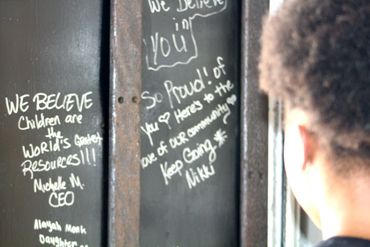 WE BELIEVE
Children are
the
World's Greatest
Resources!!!
Michelle M.
CEO
Alayah Monk
Daughter
We Believe
in
YOU
So Proud! of
You Here's to the
love of our community
Keep Going
Nikki